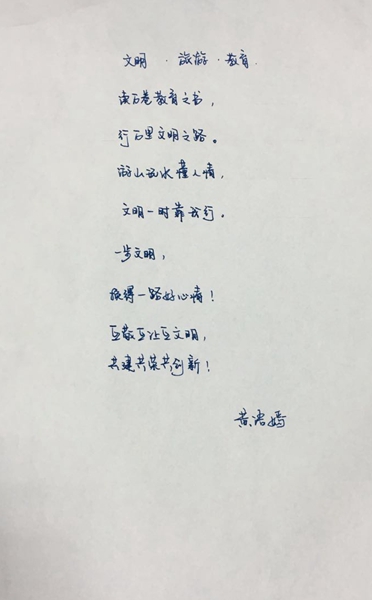 文明·旅游·教育
读万卷教育之书，
行万里文明之路。
游山玩水懂人情，
文明一时靠我行。
一步文明，
换得一路好心情！
互敬互让互文明，
共建共荣共创新！
黄洛嫣